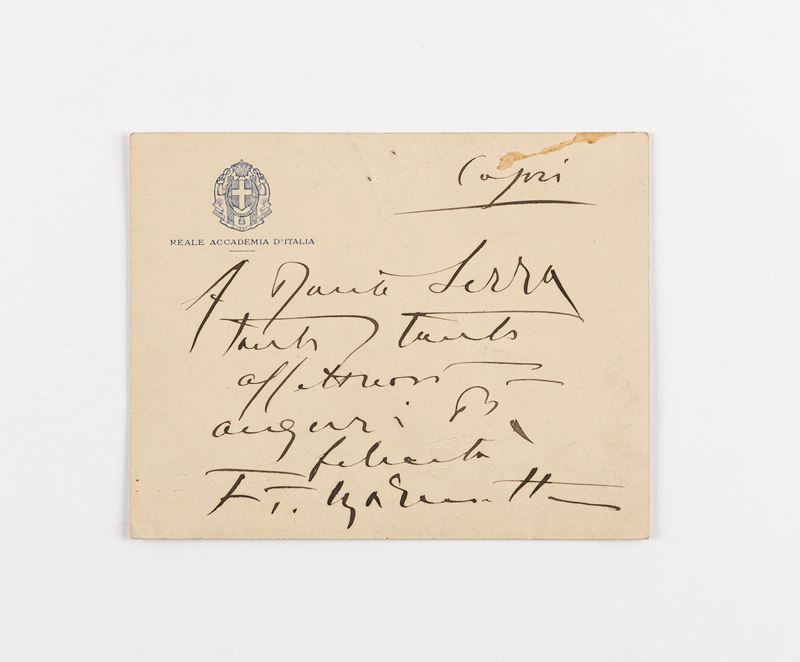 Capri
REALE ACCADEMIA D'ITALIA
A Dante Serra
tanti tanti
affettuosi
auguri di
felicità
F. T. Marinetti